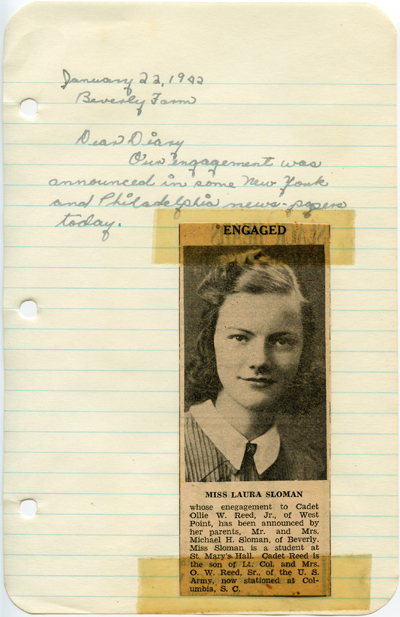 January 22, 1942
Beverly Farm
Dear Diary
Our engagement was
announced in some New York
and Philadelphia news-papers
today.
ENGAGED
MISS LAURA SLOMAN
whose enegagement to Cadet
Ollie W. Reed, Jr., of West
Point, has been announced by
her parents, Mr. and Mrs.
Michael H. Sloman, of Beverly.
Miss Sloman is a student at
St. Mary's Hall. Cadet Reed is
the son of Lt. Col. and Mrs.
O. W. Reed, Sr., of the U. S.
Army, now stationed at Col-
umbia, S. C.